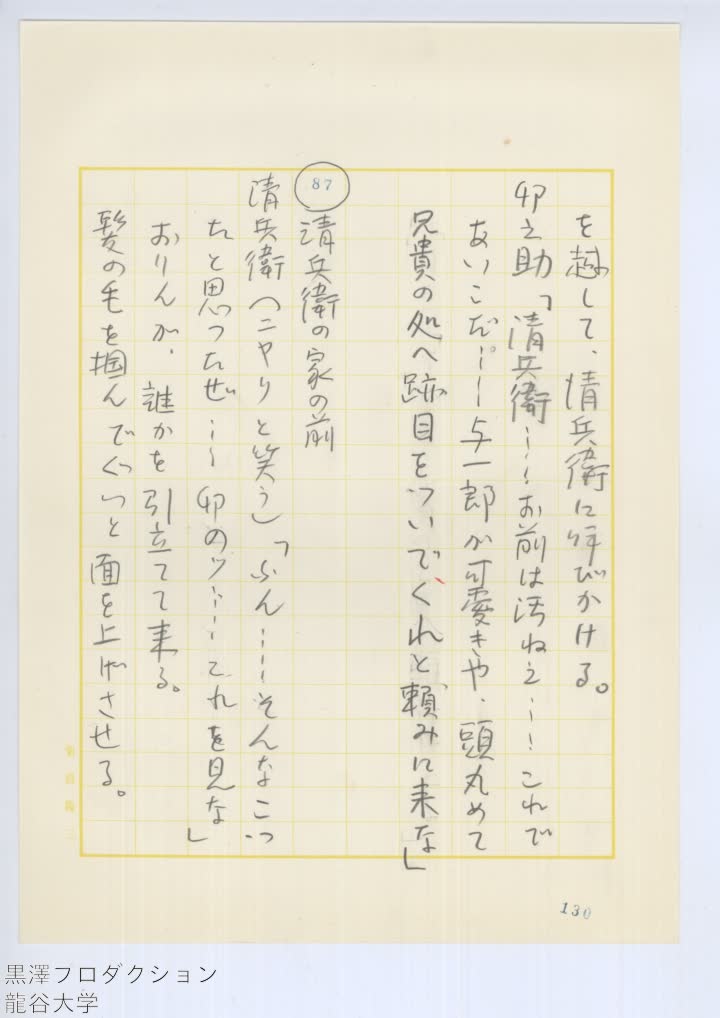 を越して、清兵衛に呼びかける。
卯之助「清兵衛……お前は汚ねえ……これで
あいこだ……与一郎が可愛きや、頭丸めて
兄貴の処へ跡目をついでくれと頼みに来な」
87
清兵衛の家の前
清兵衛（ニヤリと笑う）「ふん……そんなこつ
たと思つたぜ……卯のッ……これを見な」
おりんが、誰かを引立てて来る。
髪の毛を掴んでぐいと面を上げさせる。
130
黒澤プロダクション
龍谷大学